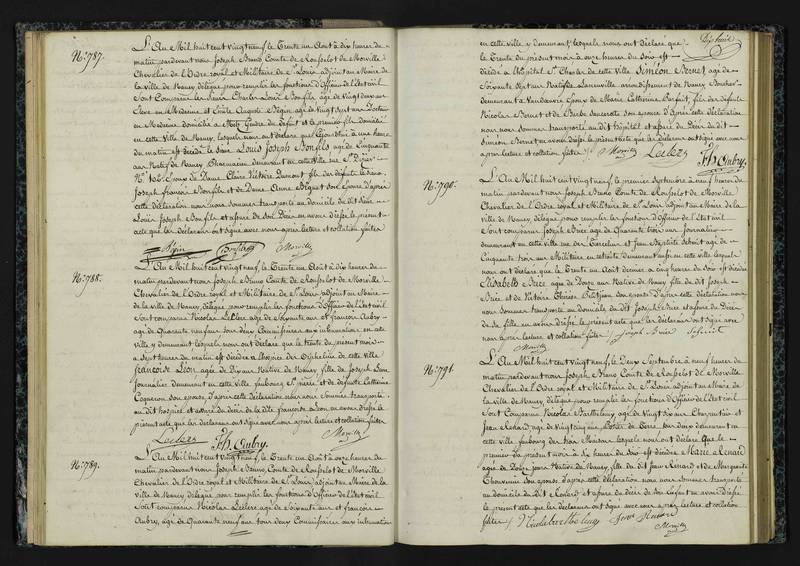 N.º 787.
L'An Mil huit cent vingt neuf, le Trente un Aout à dix heures du
matin pardevant nous Joseph Bruno Comte de Rouſselot de Morville
Chevalier de l'Ordre royal et Militaire de St. Louis adjoint au Maire de
la ville de Nancy délégué pour remplir les fonctions d'Officier de l'état civil
Sont Comparus les Sieurs Charles Louis Bonfils âgé de vingt deux ans
Elève en Médecine et Emile Auguste Bégin âgé de vingt sept ans Docteur
en Médecine domicilié à Metz Gendre du défunt et le premier fils domicilié
en cette Ville de Nancy, lesquels nous ont déclaré que Cejourd'hui à une heure
du matin est décédé le Sieur Louis Joseph Bonfils âgé de Cinquante
ans Natif de Nancy Chirurgien demeurant en cette Ville rue St. Dizier
N.º 162 Epoux de Dame Claire Victoire Dumont fils des défunts le Sieur
Joseph françois Bonfils et de Dame Anne Bégnet son épouse d'après
cette déclaration nous nous sommes transporté au domicile du dit Sieur
Louis Joseph Bonfils et assuré de son Décès en avons dressé le présent
acte que les déclarants ont signé avec nous après lecture et collation faites
Bégin Bonfils Morville
N.º 788.
L'An Mil huit cent vingt neuf, le Trente un Aout à dix heures du
matin pardevant nous Joseph Bruno Comte de Rouſselot de Morville
Chevalier de l'Ordre royal et Militaire de St. Louis adjoint au Maire
de la ville de Nancy, délégué pour remplir les fonctions d'Officier de l'état civil
Sont comparus Nicolas Leclerc âgé de Soixante ans et françois Aubry
âgé de Quarante neuf ans tous deux Commissaires aux inhumations en cette
ville y demeurant lesquels nous ont déclaré que le trente du présent mois
à sept heures du matin est décédée à l'hospice des Orphelins de cette ville
françoise Lion, âgée de Dix ans Native de Nancy, fille de Joseph Lion
Journalier demeurant en cette ville faubourg St. pierre et de défunte Catherine
Coqueron son épouse, d'après cette déclaration nous nous sommes transporté
au dit hospice et assuré du décès de la dite françoise Lion, en avons dressé le
présent acte que les déclarants ont signé avec nous après lecture et collation faites
Leclerc Fs Aubry. Morville
N.º 789.
L'An Mil huit cent vingt neuf, le Trente un Aout à onze heures du
matin pardevant nous Joseph Bruno Comte de Rouſselot de Morville
Chevalier de l'Ordre royal et Militaire de St. Louis, adjoint au Maire de la
ville de Nancy délégué pour remplir les fonctions d'Officier de l'état civil
Sont comparus Nicolas Leclerc âgé de Soixante ans et françois
Aubry, âgé de Quarante neuf ans tous deux Commissaires aux inhumations
en cette ville y demeurant, lesquels nous ont déclaré que
le Trente du présent mois à onze heures du Soir est
décédé à l'hôpital St. Charles de cette ville Siméon Bernet, âgé de
Soixante Sept ans Natif de Laneuville arrondissement de Nancy Boucher
demeurant à Vandœuvre Epoux de Marie Catherine Parfait, fils des défunts
Nicolas Bernet et de Barbe son épouse d'Après cette déclaration
nous nous sommes transporté au dit hôpital et assuré du Décès du dit
Siméon Bernet en avons dressé le présent acte que les déclarants ont signé avec nous
après lecture et collation faites Morville Leclerc Fs Aubry.
N.º 790.
L'An Mil huit cent vingt neuf, le premier Septembre à neuf heures du
matin pardevant nous Joseph Bruno Comte de Rouſselot de Morville
Chevalier de l'Ordre royal et Militaire de St. Louis adjoint au Maire de la
ville de Nancy, délégué pour remplir les fonctions d'Officier de l'état civil
Sont comparus Joseph Brice âgé de Quarante trois ans Journalier
demeurant en cette ville rue des Tiercelins et Jean Baptiste âgé de
Cinquante trois ans Militaire en retraite demeurant aussi en cette ville lesquels
nous ont déclaré que le Trente un Aout dernier à cinq heures du Soir est décédée
Elisabeth Brice âgée de Douze ans Native de Nancy fille du dit Joseph
Brice et de Victoire son épouse D'après cette déclaration nous
nous sommes transporté au domicile du dit Joseph Brice et assuré du Décès
de sa fille en avons dressé le présent acte que les déclarants ont signé avec
nous après lecture et collation faites Joseph Brice
Morville
N.º 791.
L'An Mil huit cent vingt neuf, le Deux Septembre à neuf heures du
matin pardevant nous Joseph Bruno Comte de Rouſselot de Morville
Chevalier de l'Ordre royal et Militaire de St. Louis adjoint au Maire de
la ville de Nancy, délégué pour remplir les fonctions d'Officier de l'état civil
Sont Comparus Nicolas Barthelemy âgé de Vingt six ans Charpentier et
Jean Renard âgé de Vingt cinq ans Potier de Terre tous deux demeurant en
cette ville faubourg des trois Maisons lesquels nous ont déclaré Que le
premier du présent mois à Six heures du Soir est décédée Marie Renard
âgée de Douze Jours Native de Nancy, fille du dit Jean Renard et de Marguerite
Thouvenin son épouse d'après cette déclaration nous nous sommes transporté
au domicile du dit Renard et assuré du décès de son Enfant en avons dressé
le présent acte que les déclarants ont signé avec nous après lecture et collation
faites Nicolas Barthelemy Jean Renard
Morville